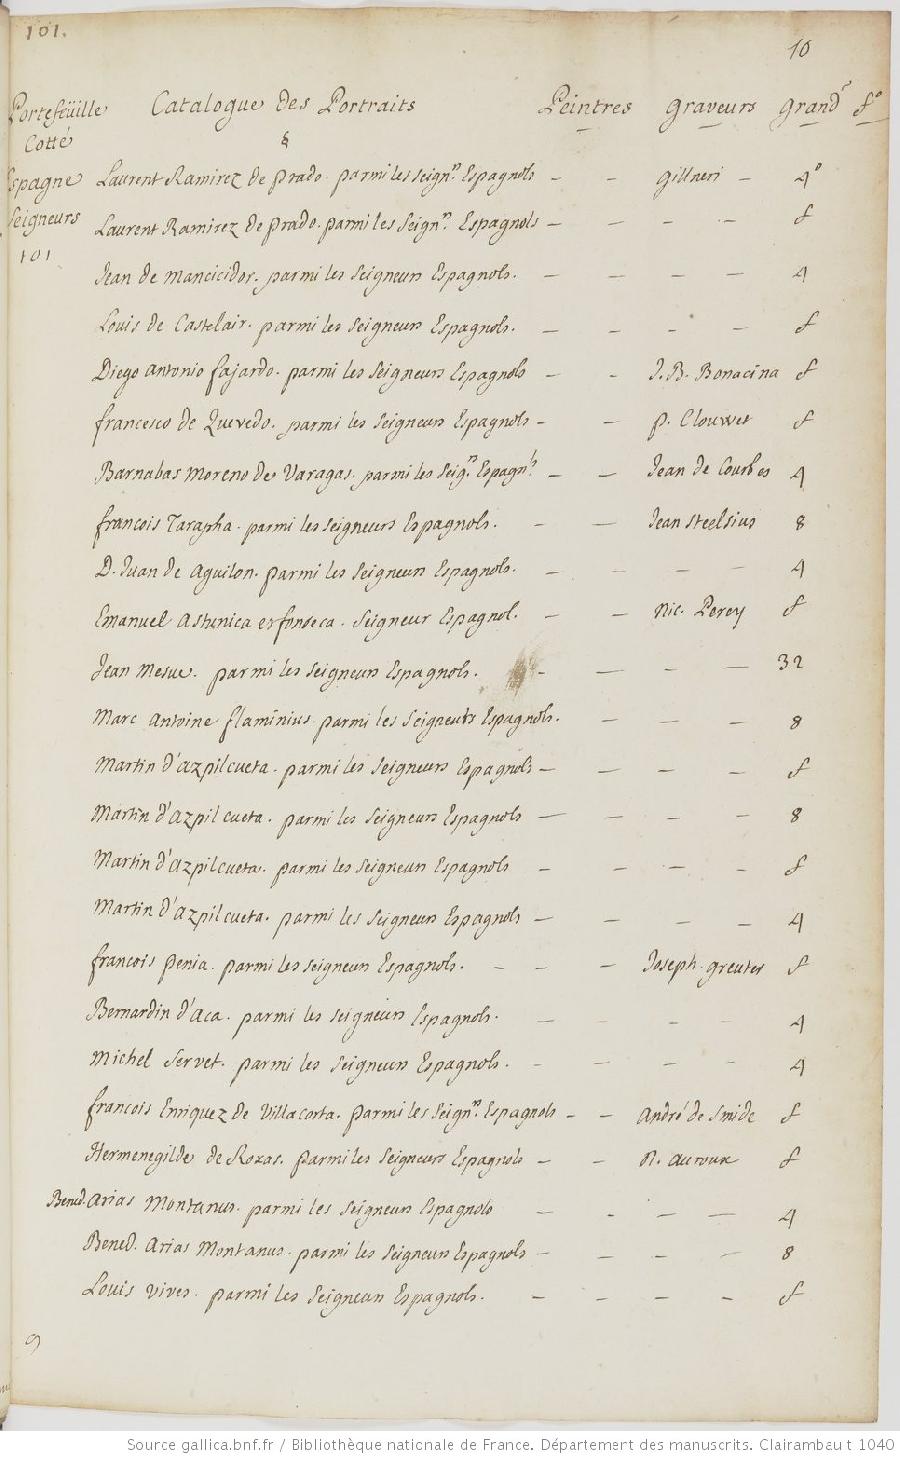 101.
10
Portefeüille Catalogue des Portraits Peintres Graveurs Grandr fo
Cotté
Espagne Laurent Ramirez de Prado. parmi les Seignrs Espagnols - - Gillneri - 4o
Seigneurs Laurent Ramirez de Prado. parmi les Seignrs Espagnols - - - - f
101
Jean de Mancicidor. parmi les Seigneurs Espagnols. - - - - 4
Louis de Castelair. parmi les Seigneurs Espagnols. - - - - f
Diego Antonio fajardo. parmi les Seigneurs Espagnols - - J. B. Bonacina f
francesco de Quevedo. parmi les Seigneurs Espagnols - - P. Clouwet f
Barnabas Moreno de Varagas. parmi les Seigrs Espagnls - - Jean de Courbes 4
francois Tarapha. parmi les Seigneurs Espagnols. - - Jean Steelsius 8
D. Juan de Aguilon. parmi les Seigneurs Espagnols. - - - - 4
Emanuel Astunica esfonseca. Seigneur Espagnol. - - Nic. Perey f
Jean Mesue. parmi les Seigneurs Espagnols. - - - - 32
Marc Antoine flaminius parmi les Seigneurs Espagnols. - - - 8
Martin d'azpilcueta. parmi les Seigneurs Espagnols - - - - f
Martin d'Azpilcueta. parmi les Seigneurs Espagnols - - - - 8
Martin d'Azpilcueta. parmi les Seigneurs Espagnols - - - - f
Martin d'Azpilcueta. parmi les Seigneurs Espagnols - - - - 4
francois Penia. parmi les Seigneurs Espagnols. - - - Joseph. Greuter f
Bernardin d'Aca. parmi les Seigneurs Espagnols. - - - - 4
Michel Servet. parmi les Seigneurs Espagnols. - - - - 4
francois Enriquez de Villacorta. parmi les Seignrs Espagnols - - André de Smide f
Hermenegilde de Roxas. parmi les Seigneurs Espagnols - - R. Auroux f
Bened. Arias Montanus. parmi les Seigneurs Espagnols - - - - 4
Bened. Arias Montanus. parmi les Seigneurs Espagnols - - - - 8
Louis Vives. parmi les Seigneurs Espagnols. - - - - f
9
Source gallica.bnf.fr / Bibliothèque nationale de France. Département des manuscrits. Clairambaut 1040